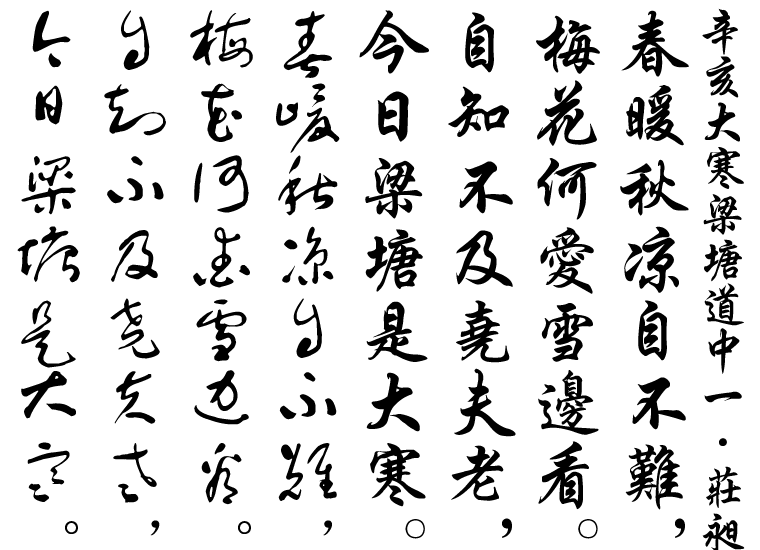 辛亥大寒梁塘道中一·莊昶
春暖秋凉自不難，
梅花何愛雪邊看。
自知不及堯夫老，
今日梁塘是大寒。
春暖秋凉自不難，
梅花何愛雪邊看。
自知不及堯夫老，
今日梁塘是大寒。